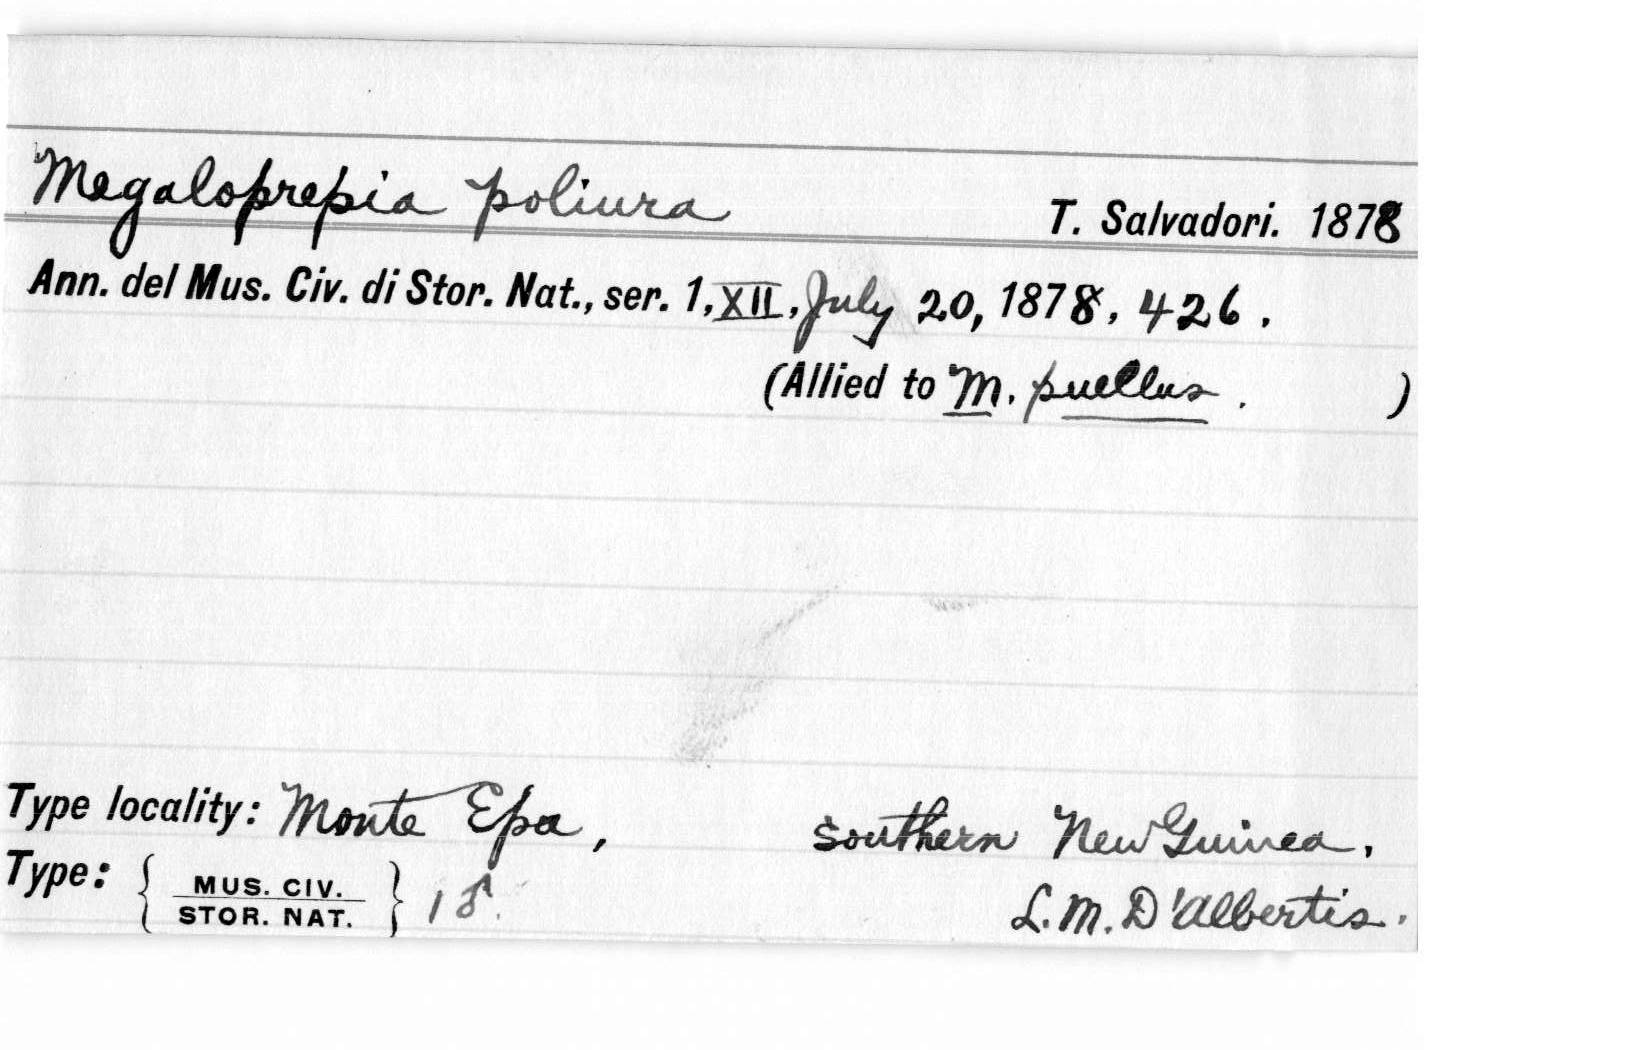 Megaloprepia poliura T. Salvadori. 1878
Ann. del Mus. Civ. di Stor. Nat., ser. 1, XII, July 20, 1878, 426.
(Allied to M. puellus. )
Type locality: Monte Epa, Southern New Guinea.
Type: { MUS. CIV. STOR. NAT. } 1 ♂. L. M. D'Albertis.